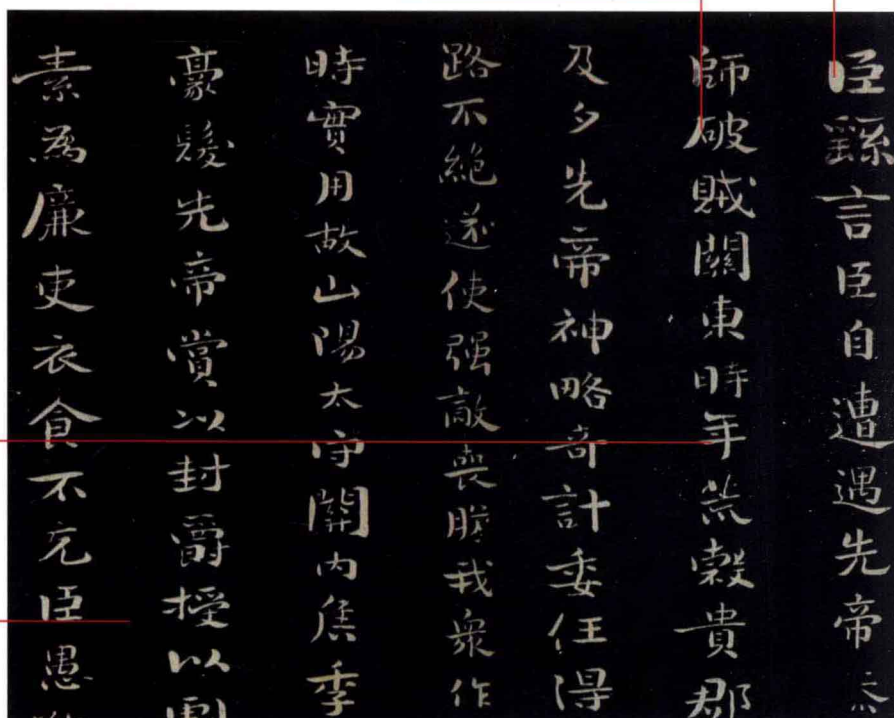 臣繇言臣自遭遇先帝忝
師破賊關東時年荒穀貴郡
及夕先帝神略奇計委任得
路不絶遂使强敵喪膽我衆作
時實用故山陽太守關内侯季
豪髮先帝賞以封爵授以劇
素爲廉吏衣食不充臣愚